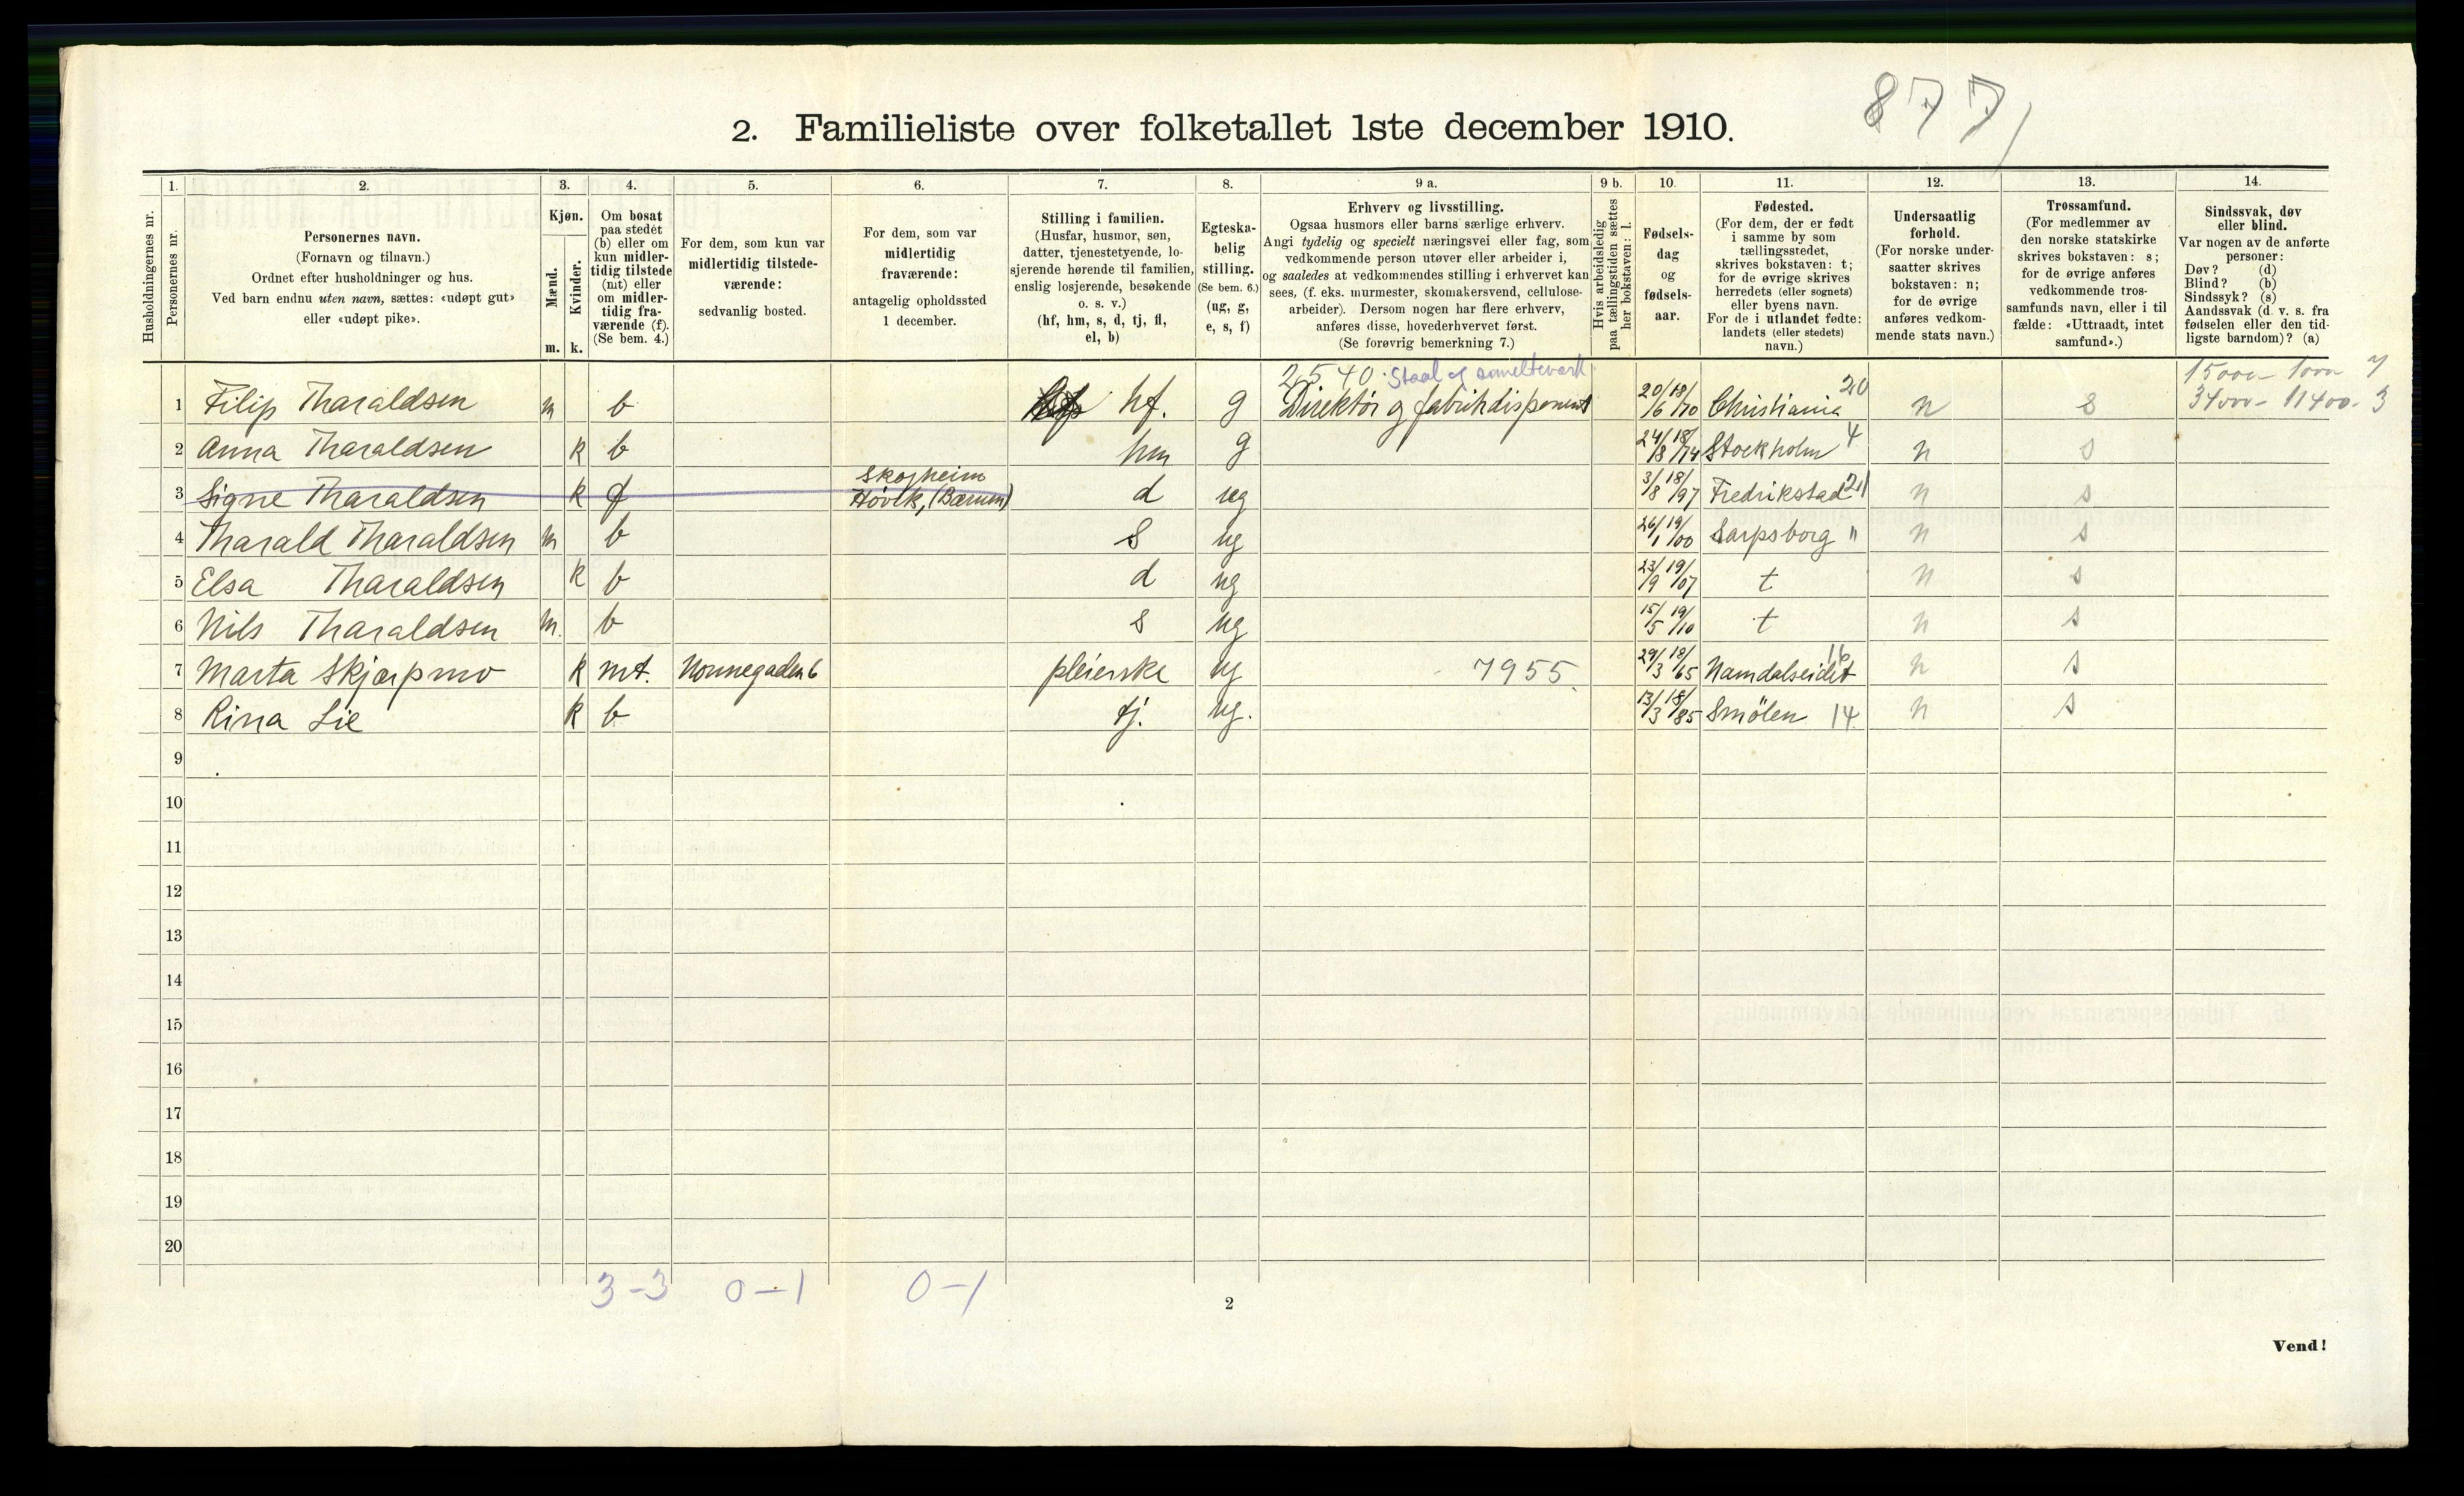 877
2. Familieliste over folketallet 1ste december 1910.
Husholdningernes nr.
1.
Personernes nr.
2.
Personernes navn.
(Fornavn og tilnavn.)
Ordnet efter husholdninger og hus.
Ved barn endnu uten navn, sættes: «udøpt gut»
eller «udøpt pike».
3.
Kjøn.
Mænd.
Kvinder.
m. k.
4.
Om bosat
paa stedet
(b) eller om
kun midler-
tidig tilstede
(mt) eller
om midler-
tidig fra-
værende (f).
(Se bem. 4.)
5.
For dem, som kun var
midlertidig tilstede-
værende:
sedvanlig bosted.
6.
For dem, som var
midlertidig
fraværende:
antagelig opholdssted
1 december.
7.
Stilling i familien.
(Husfar, husmor, søn,
datter, tjenestetyende, lo-
sjerende hørende til familien,
enslig losjerende, besøkende
o. s. v.)
(hf, hm, s, d, tj, fl,
el, b)
8.
Egteska-
belig
stilling.
(Se bem. 6.)
(ug, g,
e, s, f)
9 a.
Erhverv og livsstilling.
Ogsaa husmors eller barns særlige erhverv.
Angi tydelig og specielt næringsvei eller fag, som
vedkommende person utøver eller arbeider i,
og saaledes at vedkommendes stilling i erhvervet kan
sees, (f. eks. murmester, skomakersvend, cellulose-
arbeider). Dersom nogen har flere erhverv,
anføres disse, hovederhvervet først.
(Se forøvrig bemerkning 7.)
9 b.
Hvis arbeidsledig
paa tællingstiden sættes
her bokstaven: l.
10.
Fødsels-
dag
og
fødsels-
aar.
11.
Fødested.
(For dem, der er født
i samme by som
tællingsstedet,
skrives bokstaven: t;
for de øvrige skrives
herredets (eller sognets)
eller byens navn.
For de i utlandet fødte:
landets (eller stedets)
navn.)
12.
Undersaatlig
forhold.
(For norske under-
saatter skrives
bokstaven: n;
for de øvrige
anføres vedkom-
mende stats navn.)
13.
Trossamfund.
(For medlemmer av
den norske statskirke
skrives bokstaven: s;
for de øvrige anføres
vedkommende tros-
samfunds navn, eller i til
fælde: «Uttraadt, intet
samfund».)
14.
Sindssvak, døv
eller blind.
Var nogen av de anførte
personer:
Døv? (d)
Blind? (b)
Sindssyk? (s)
Aandssvak (d. v. s. fra
fødselen eller den tid-
ligste barndom)? (a)
2540 Staal og smelteverk
1 Filip Tharaldsen m b hf. g Direktör og fabrikdisponent 20/6 18/70 Christiania 20 n s
2 Anna Tharaldsen k b hm g 24/8 18/74 Stockholm 4 n s
Skogheim
3 Signe Tharaldsen k f Hövik, (Bærum) d ug 3/8 18/97 Fredrikstad 21 n s
4 Tharald Tharaldsen m b s ug 26/1 19/00 Sarpsborg " n s
5 Elsa Tharaldsen k b d ug 23/9 19/07 t n s
6 Nils Tharaldsen m. b s ug 15/5 19/10 t n s
7 Marta Skjærpmo k mt. Nonnegaden 6 pleierske ug 7955. 29/3 18/65 Namdalseidet 16 n s
8 Rina Lie k b tj. ug. 13/3 18/85 Smölen 14. n s
9
10
11
12
13
14
15
16
17
18
19
20
3-3 0-1 0-1
2
Vend!